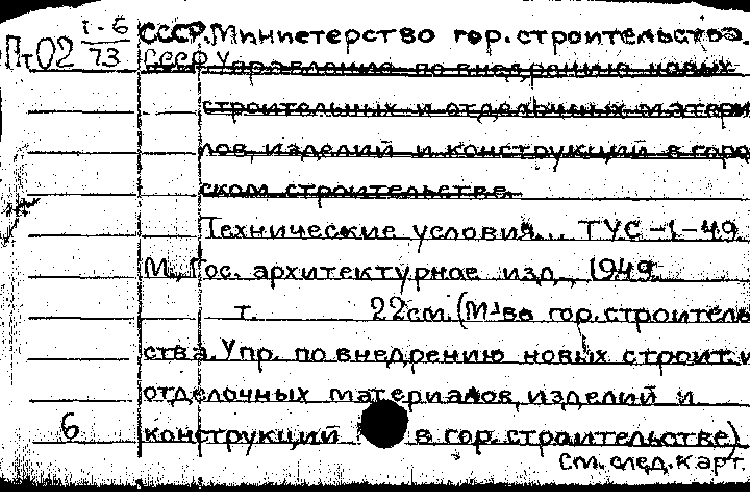 Пт02 1-6/73 СССР. Министерство гор. строительства.
СССР Управление по внедрению новых
строительных и отделочных матери
лов, изделий и конструкций в горо
ском строительстве.
Технические условия... ТУС-1-49.
М., Гос. архитектурное изд., 1949.
т. 22см. (М-во гор. строитель
ства. Упр. по внедрению новых строит. и
отделочных материалов, изделий и
6 конструкций в гор. строительстве)
См. след. карт.